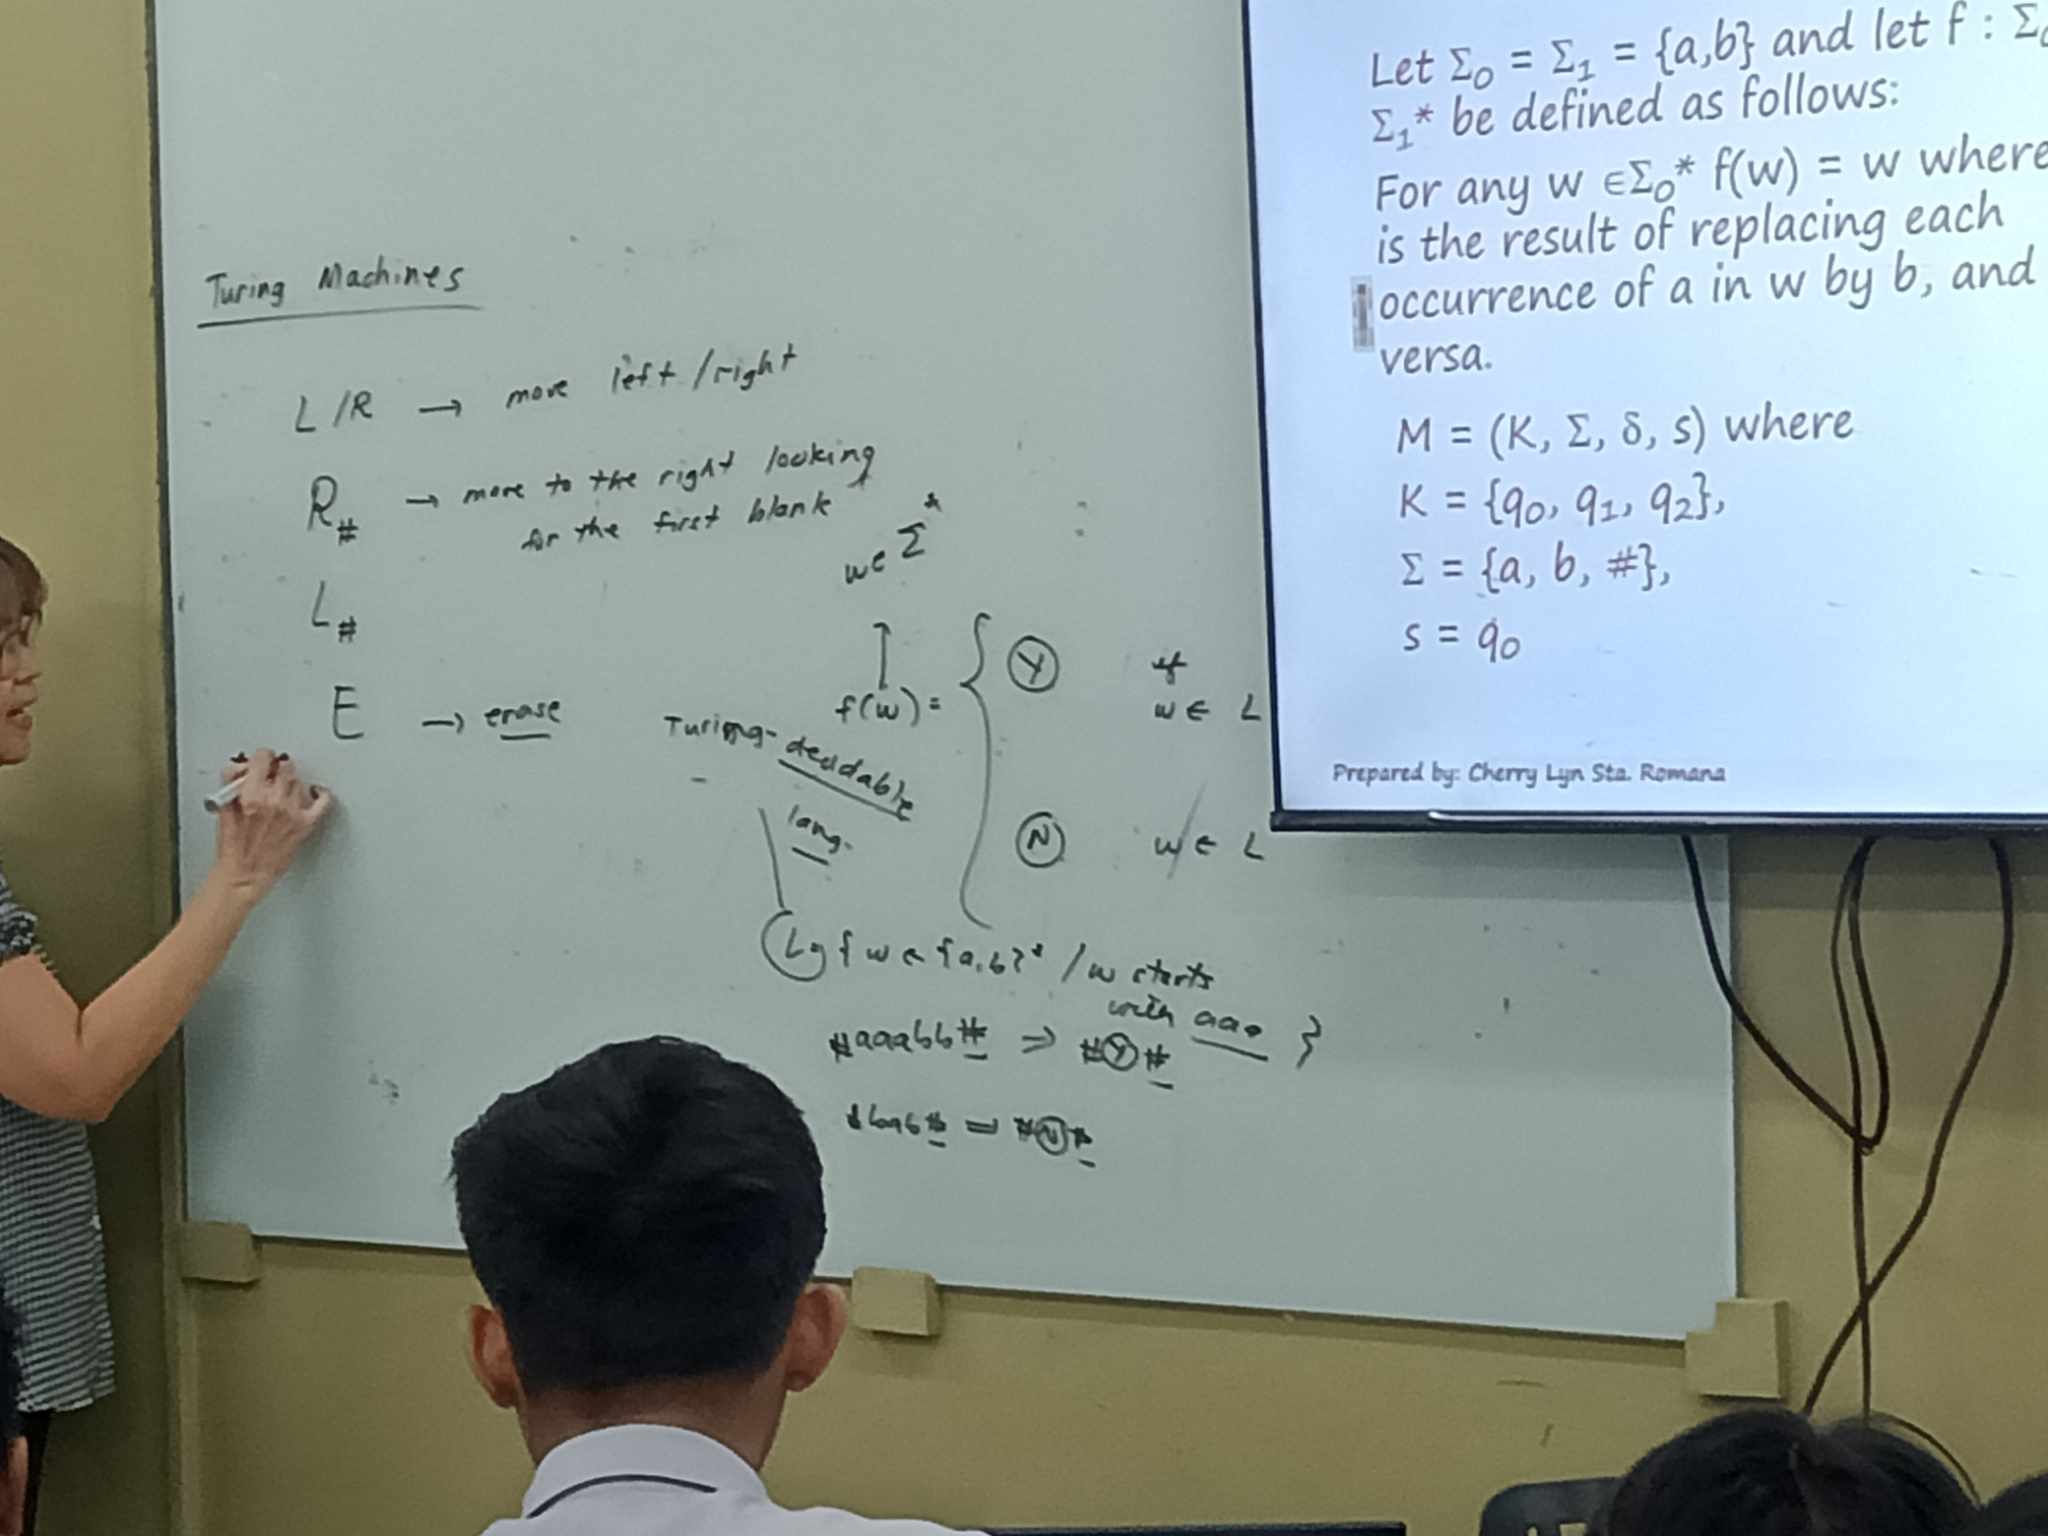 Turing Machines
L/R → move left/right
R# → move to the right looking
for the first blank
L#
E → erase
w ∈ Σ*
↑
f(w) = { Ⓨ if
w ∈ L
Ⓝ w ∉ L
Turing-decidable
lang.
L = { w ∈ {a,b}* / w starts
with aaa }
#aaabb# ⇒ #Ⓨ#
#bab# = #Ⓝ#
Let Σ0 = Σ1 = {a,b} and let f : Σ0
Σ1* be defined as follows:
For any w ∈Σ0* f(w) = w where
is the result of replacing each
occurrence of a in w by b, and
versa.
M = (K, Σ, δ, s) where
K = {q0, q1, q2},
Σ = {a, b, #},
s = q0
Prepared by: Cherry Lyn Sta. Romana